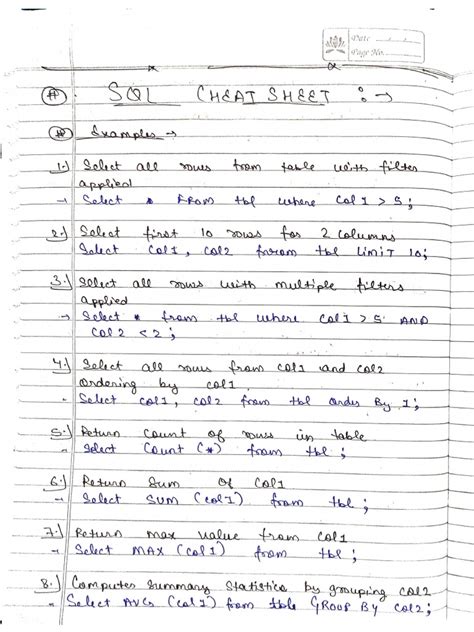 Date
Page No.
# SQL CHEAT SHEET :→
Examples →
1.) Select all rows from table with filter
applied
→ Select * FROM tbl where col1 > 5;
2.) Select first 10 rows for 2 columns
Select col1, col2 from tbl LIMIT 10;
3.) Select all rows with multiple filters
applied
→ Select * from tbl where col1 > 5 AND
col2 < 2;
4.) Select all rows from col1 and col2
ordering by col1
- Select col1, col2 from tbl Order By 1;
5.) Return Count of rows in table
- Select Count (*) from tbl;
6.) Return Sum of Col1
→ Select SUM (col1) from tbl;
7.) Return max value from col1
- Select MAX (col1) from tbl;
8.) Computes Summary Statistics by grouping col2
- Select AVG (col1) from tble GROUP BY col2;